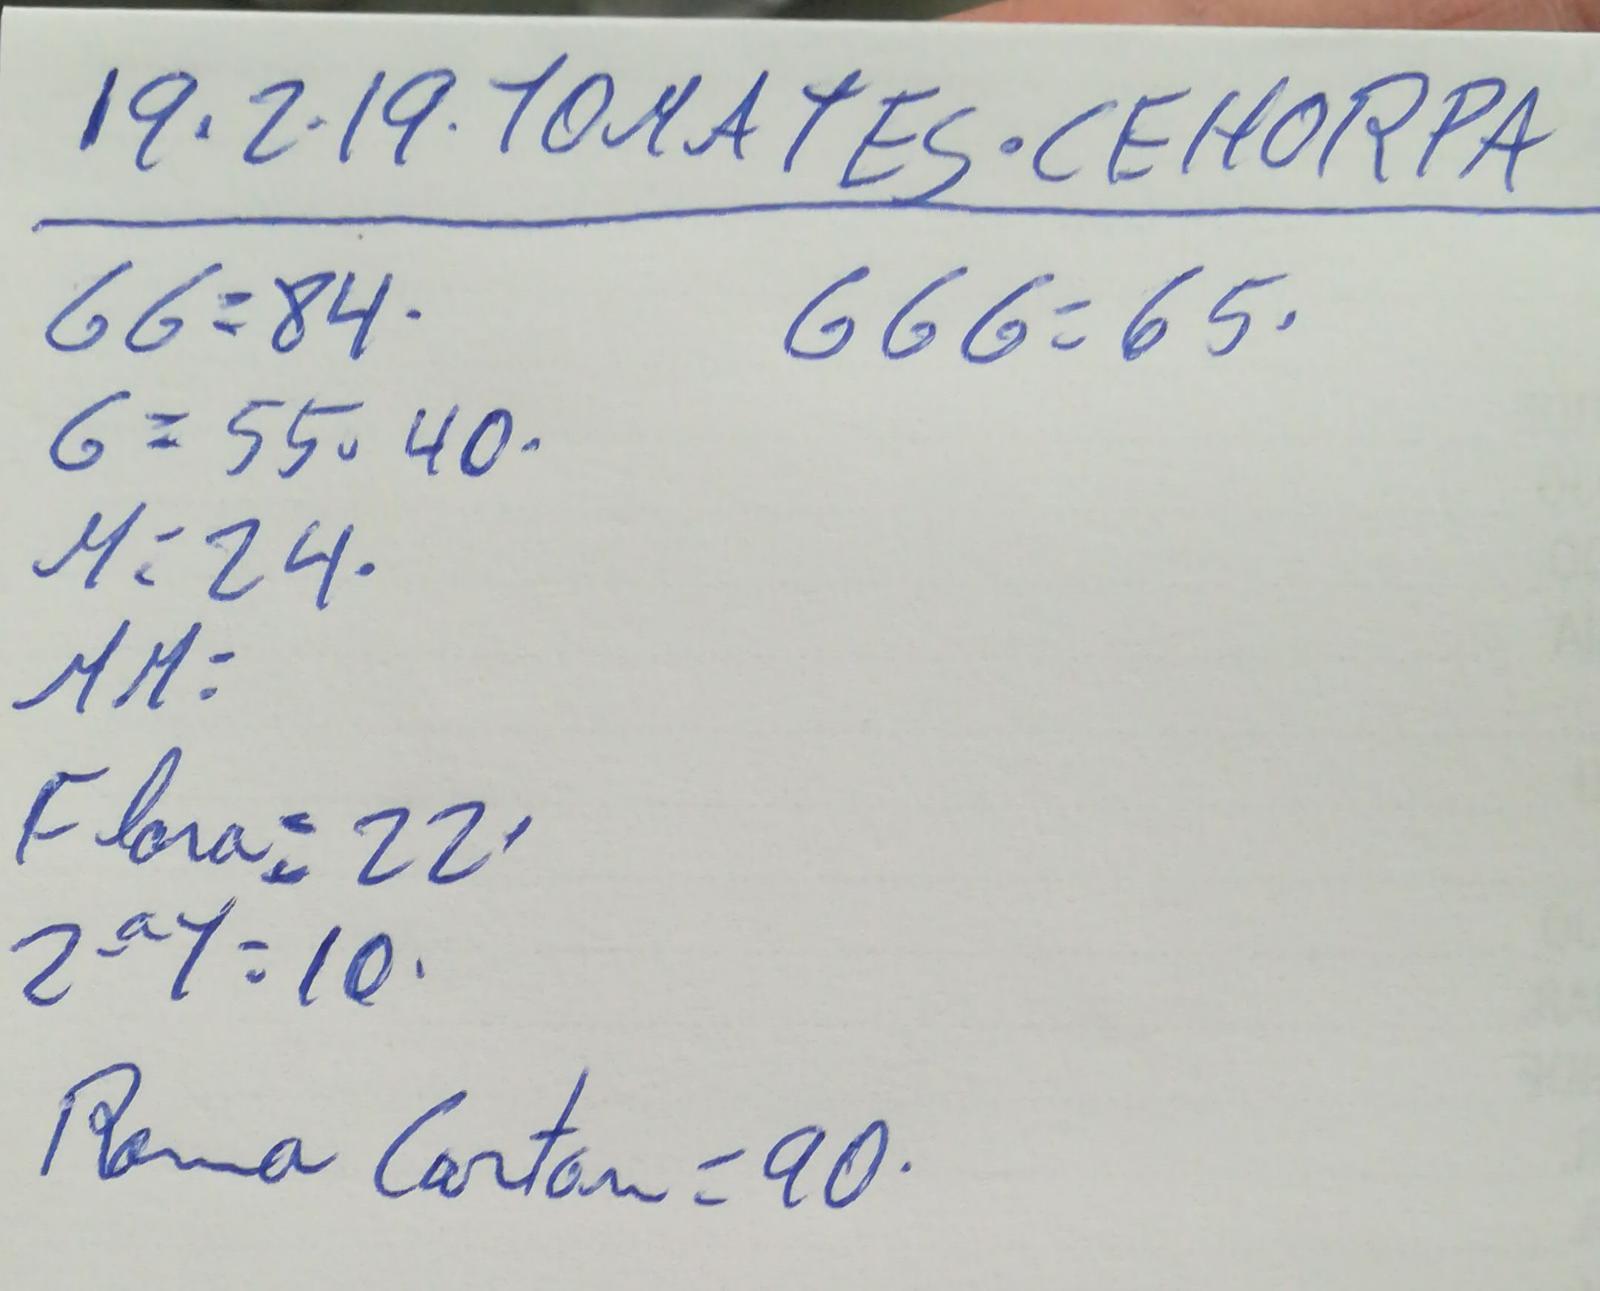 19.2.19.TOMATES.CEHORPA
GG=84. GGG=65.
G=55.40.
M=24.
MM=
Flora=22.
2ªY=10.
Roma Carton=90.